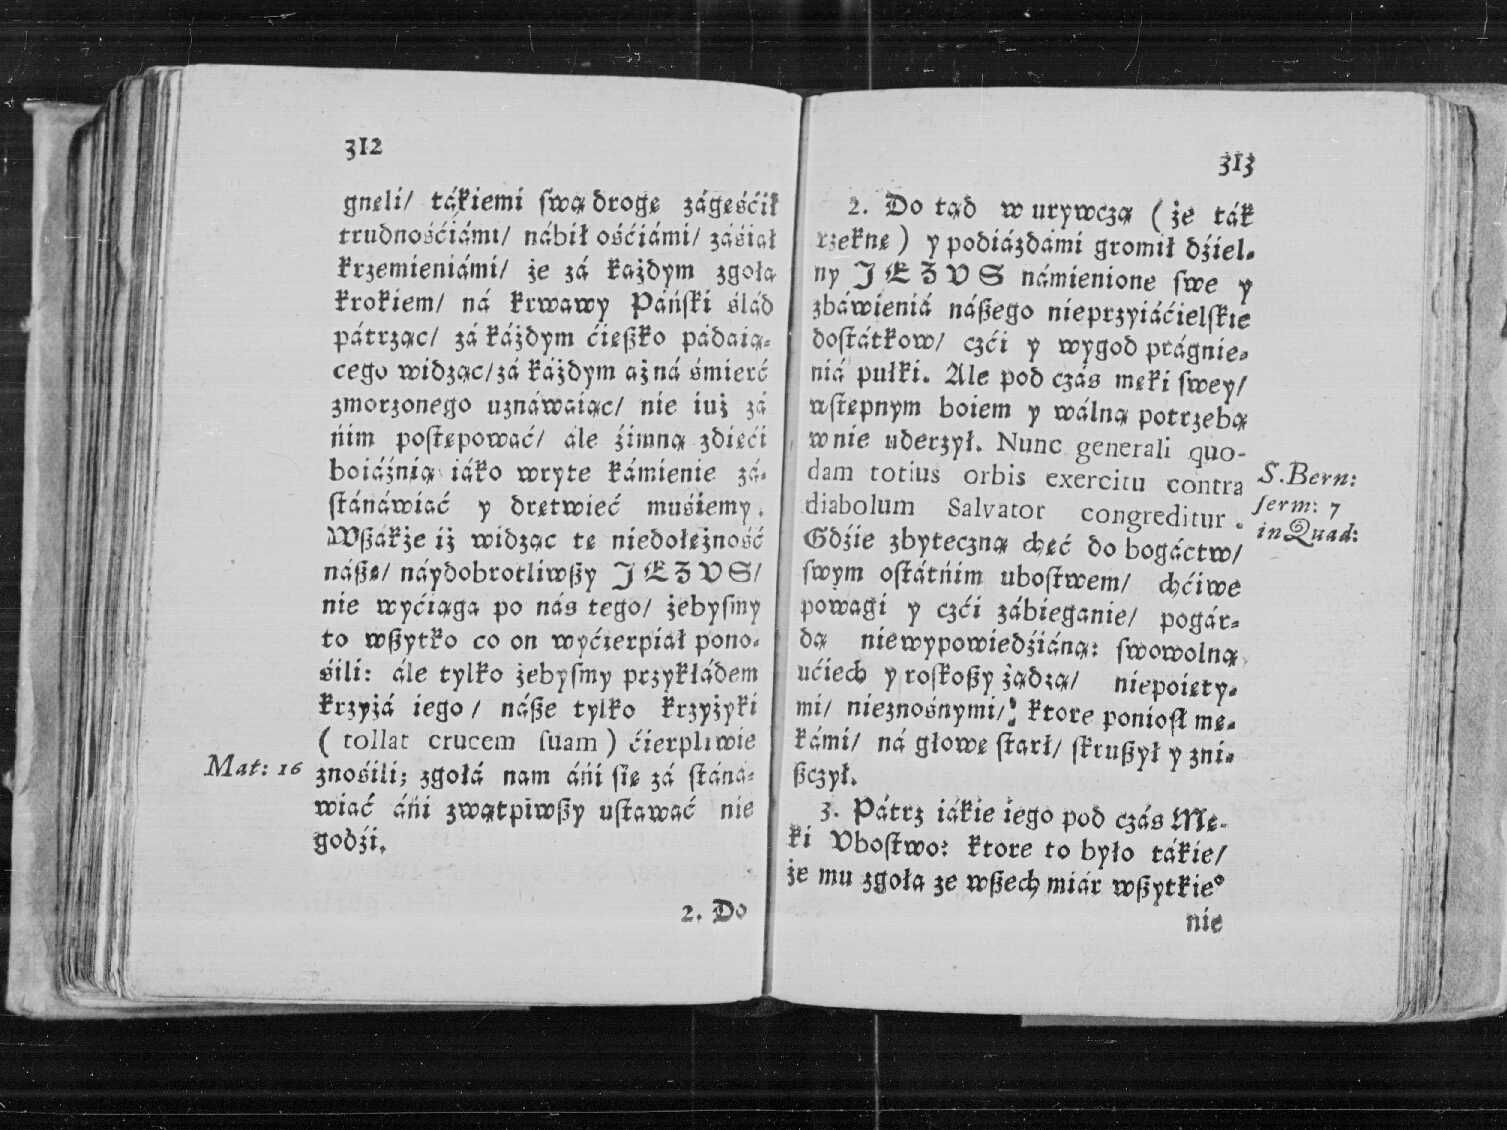 312
gnęli/ tákiemi swą drogę zágęśćił
trudnośćiámi/ nábił ośćiámi/ zásiał
krzemieniámi/ że zá każdym zgołá
krokiem/ ná krwáwy Páński ślád
pátrząc/ zá káżdym ćięßko pádaią-
cego widząc/ zá káżdym aż ná śmierć
zmorzonego uznáwaiąc/ nie iuż zá
ńim postępowáć/ ále źimną zdięći
boiáźnią iáko wryte kámienie zá-
stánáwiáć y drętwieć muśiemy.
Wßákże iż widząc tę niedołężność
náßę/ náydobrotliwßy JEZVS/
nie wyćiąga po nás tego/ żebysmy
to wßytko co on wyćierpiał pono-
śili: ále tylko żebysmy przykłádem
krzyżá iego/ náße tylko krzyżyki
( tollat crucem suam ) ćierpliwie
Mat: 16
znośili; zgołá nam áńi się zá stáná-
wiáć áńi zwątpiwßy ustawáć nie
godźi.
2. Do
313
2. Do tąd w urywczą ( że ták
rzeknę ) y podiázdámi gromił dźiel-
ny JEZVS námienione swe y
zbáwieniá náßego nieprzyiáćielskie
dostátkow/ czći y wygod prágnie-
niá pułki. Ale pod czás męki swey/
wstępnym boiem y wálną potrzebą
w nie uderzył. Nunc generali quo-
dam totius orbis exercitu contra
diabolum Salvator congreditur.
S. Bern:
serm: 7
in Quad:
Gdźie zbyteczną chęć do bogáctw/
swym ostátńim ubostwem/ chćiwe
powagi y czći zábieganie/ pogár-
dą niewypowiedźiáną: swowolną
ućiech y roskoßy żądzą/ niepoięty-
mi/ nieznośnymi/ ktore poniosł mę-
kámi/ ná głowę stárł/ skrußył y zni-
ßczył.
3. Pátrz iákie iego pod czás Mę-
ki Vbostwo: ktore to było tákie/
że mu zgołá ze wßech miár wßytkieº
nie